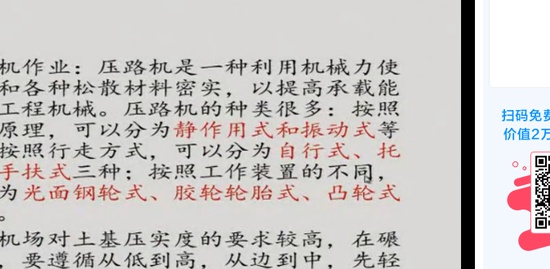 机作业：压路机是一种利用机械力使
和各种松散材料密实，以提高承载能
工程机械。压路机的种类很多：按照
原理，可以分为静作用式和振动式等
按照行走方式，可以分为自行式、托
手扶式三种；按照工作装置的不同，
为光面钢轮式、胶轮轮胎式、凸轮式
。
机场对土基压实度的要求较高，在碾
，要遵循从低到高，从边到中，先轻
扫码免费
价值2万